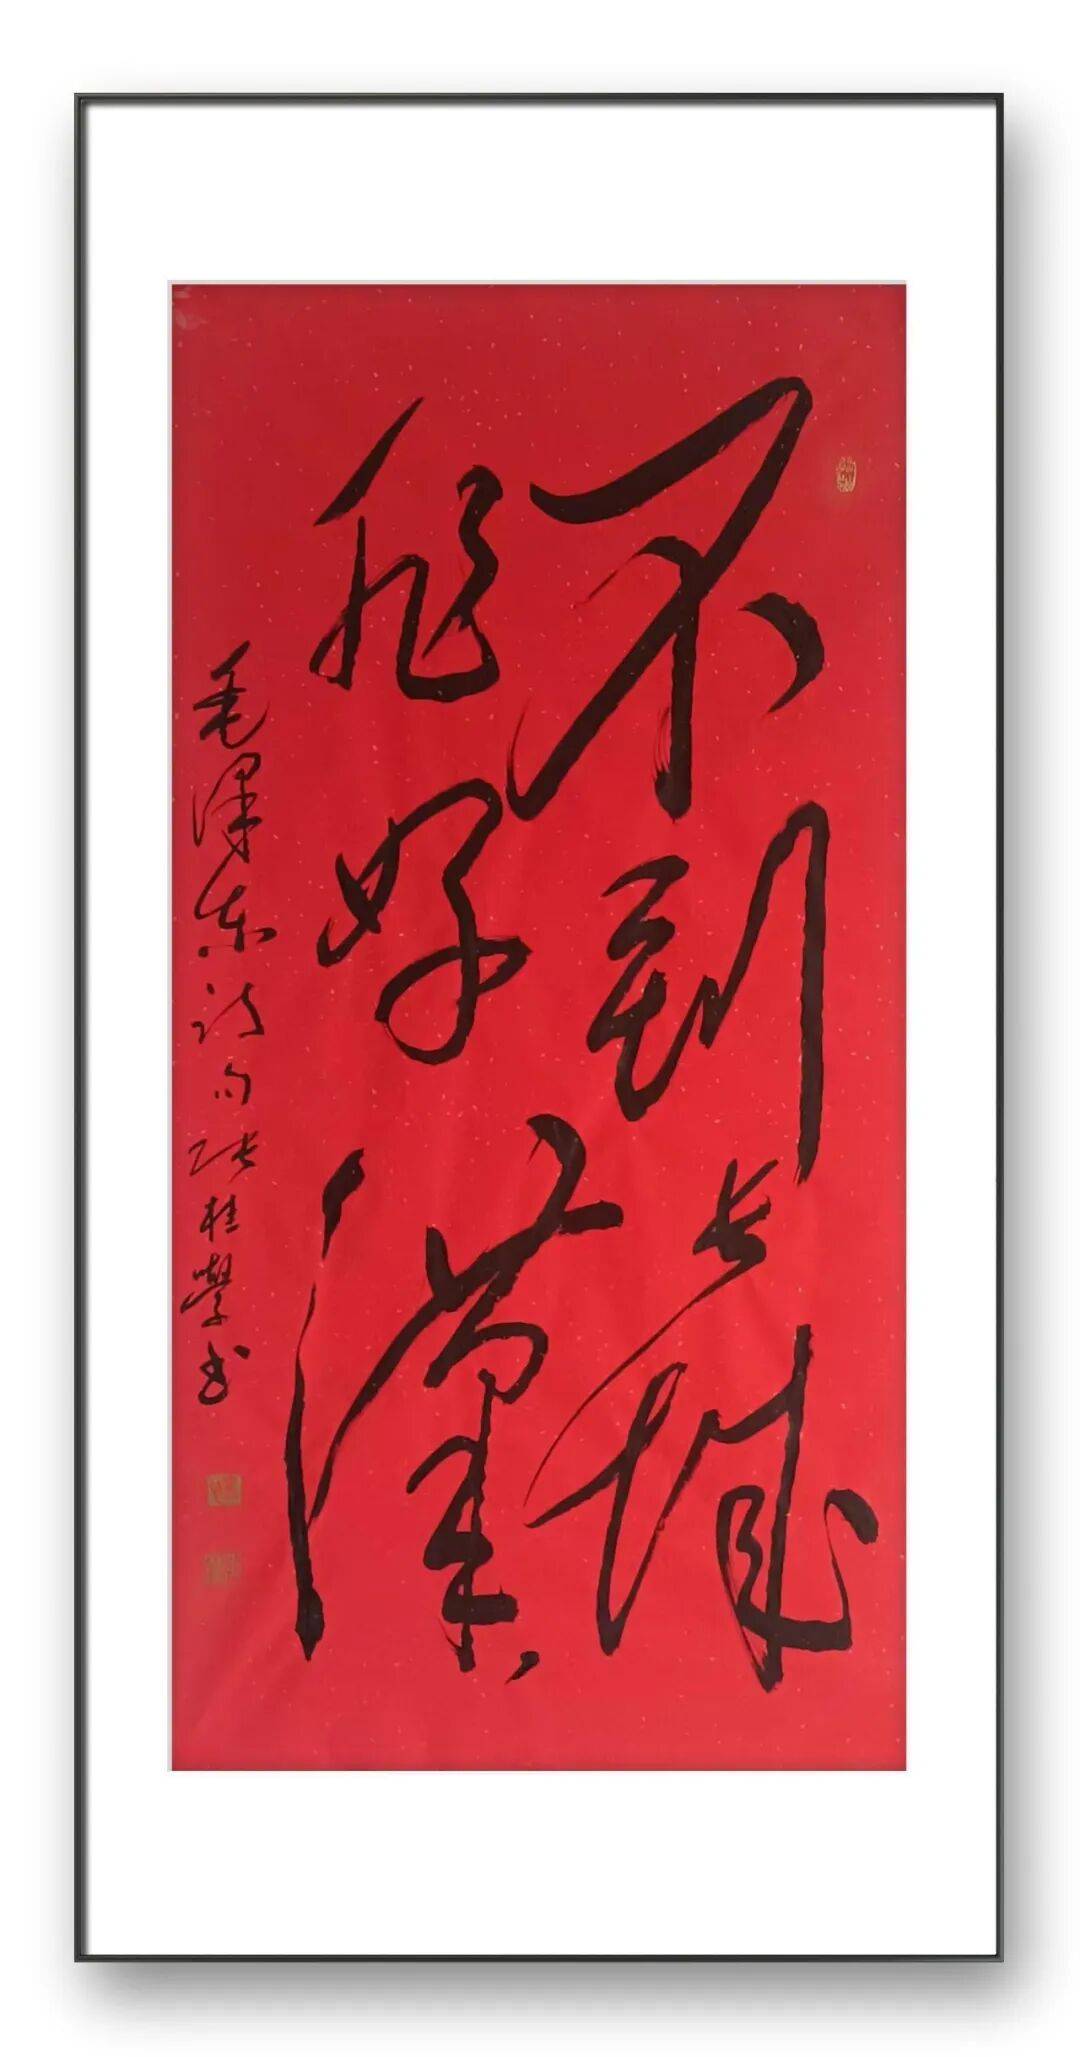 不到长城
非好汉
毛泽东诗句张桂学书